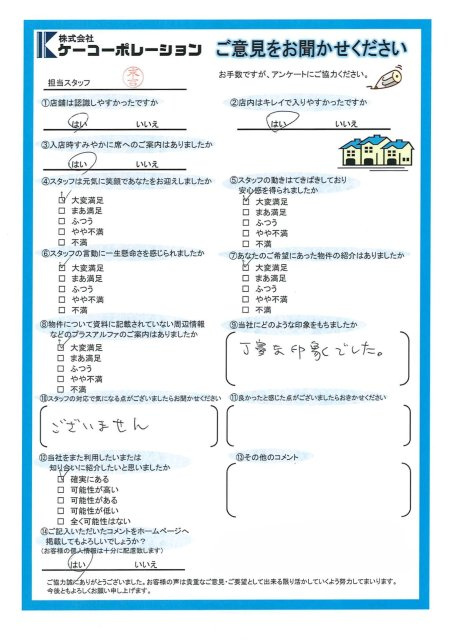 株式会社
ケーコーポレーション
ご意見をお聞かせください
担当スタッフ
お手数ですが、アンケートにご協力ください。
①店舗は認識しやすかったですか
はい いいえ
②店内はキレイで入りやすかったですか
はい いいえ
③入店時すみやかに席へのご案内はありましたか
はい いいえ
④スタッフは元気に笑顔であなたをお迎えしましたか
大変満足
まあ満足
ふつう
やや不満
不満
⑤スタッフの動きはてきぱきしており
安心感を得られましたか
大変満足
まあ満足
ふつう
やや不満
不満
⑥スタッフの言動に一生懸命さを感じられましたか
大変満足
まあ満足
ふつう
やや不満
不満
⑦あなたのご希望にあった物件の紹介はありましたか
大変満足
まあ満足
ふつう
やや不満
不満
⑧物件について資料に記載されていない周辺情報
などのプラスアルファのご案内はありましたか
大変満足
まあ満足
ふつう
やや不満
不満
⑨当社にどのような印象をもちましたか
丁寧な印象でした。
⑩スタッフの対応で気になる点がございましたらお聞かせください
ございません
⑪良かったと感じた点がございましたらおきかせください
⑫当社をまた利用したいまたは
知り合いに紹介したいと思いましたか
確実にある
可能性が高い
可能性がある
可能性が低い
全く可能性はない
⑬その他のコメント
⑭ご記入いただいたコメントをホームページへ
掲載してもよろしいでしょうか?
(お客様の個人情報は十分に配慮致します)
はい いいえ
ご協力誠にありがとうございました。お客様の声は貴重なご意見・ご要望として出来る限り活かしていくよう努力してまいります。
今後ともよろしくお願い申し上げます。